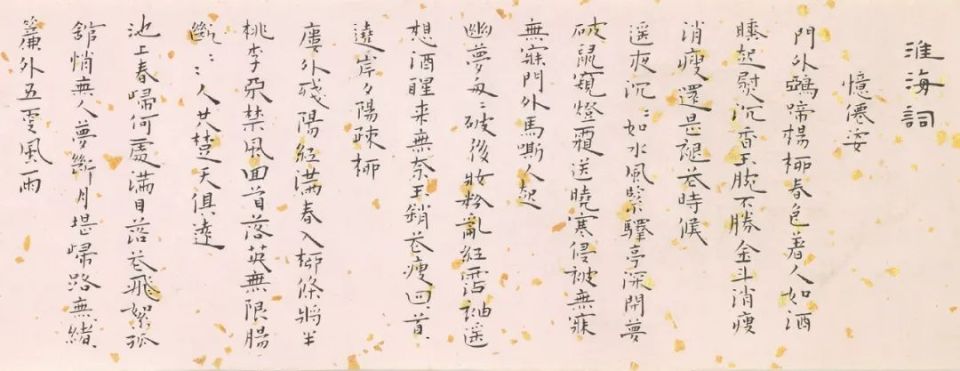 淮海詞
憶僊姿
門外鵶啼楊柳春色著人如酒
睡起熨沉香玉腕不勝金斗消瘦
消瘦還是褪花時候
遥夜沉〻如水風緊驛亭深閉夢
破鼠窺燈霜送曉寒侵被無寐
無寐門外馬嘶人起
幽夢匆〻破後妝粉亂紅霑袖遥
想酒醒来無奈玉銷花瘦回首
遶岸夕陽疎柳
廔外殘陽紅滿春入柳條將半
桃李不禁風回首落英無限腸
斷〻〻人共楚天俱遠
池上春歸何處滿目落花飛絮孤
館悄無人夢斷月堤歸路無緒
簾外五更風雨